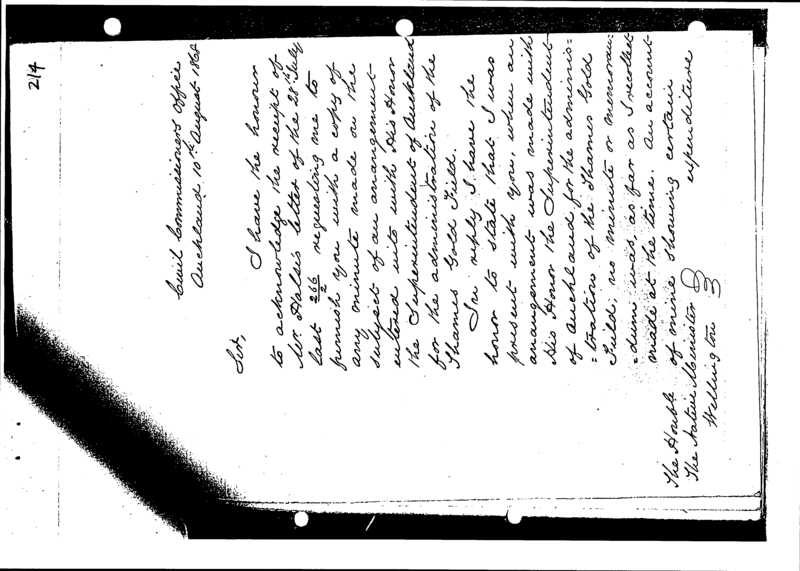 214
Civil Commissioners Office
Auckland 10th August 1868
Sir,
I have the honour
to acknowledge the receipt of
Mr Halse's letter of the 28th July
last 266/2 requesting me to
furnish you with a copy of
any minute made on the
subject of an arrangement
entered into with His Honor
the Superintendent of Auckland
for the administration of the
Thames Gold Field.
In reply I have the
honor to state that I was
present with you, when an
arrangement was made with
His Honor the Superintendent
of Auckland for the adminis=
=tration of the Thames Gold
Field; no minute or memoran=
=dum was, as far as I recollect
made at the time. An account
of mine showing certain
expenditure
The Honble
The Native Minister
Wellington